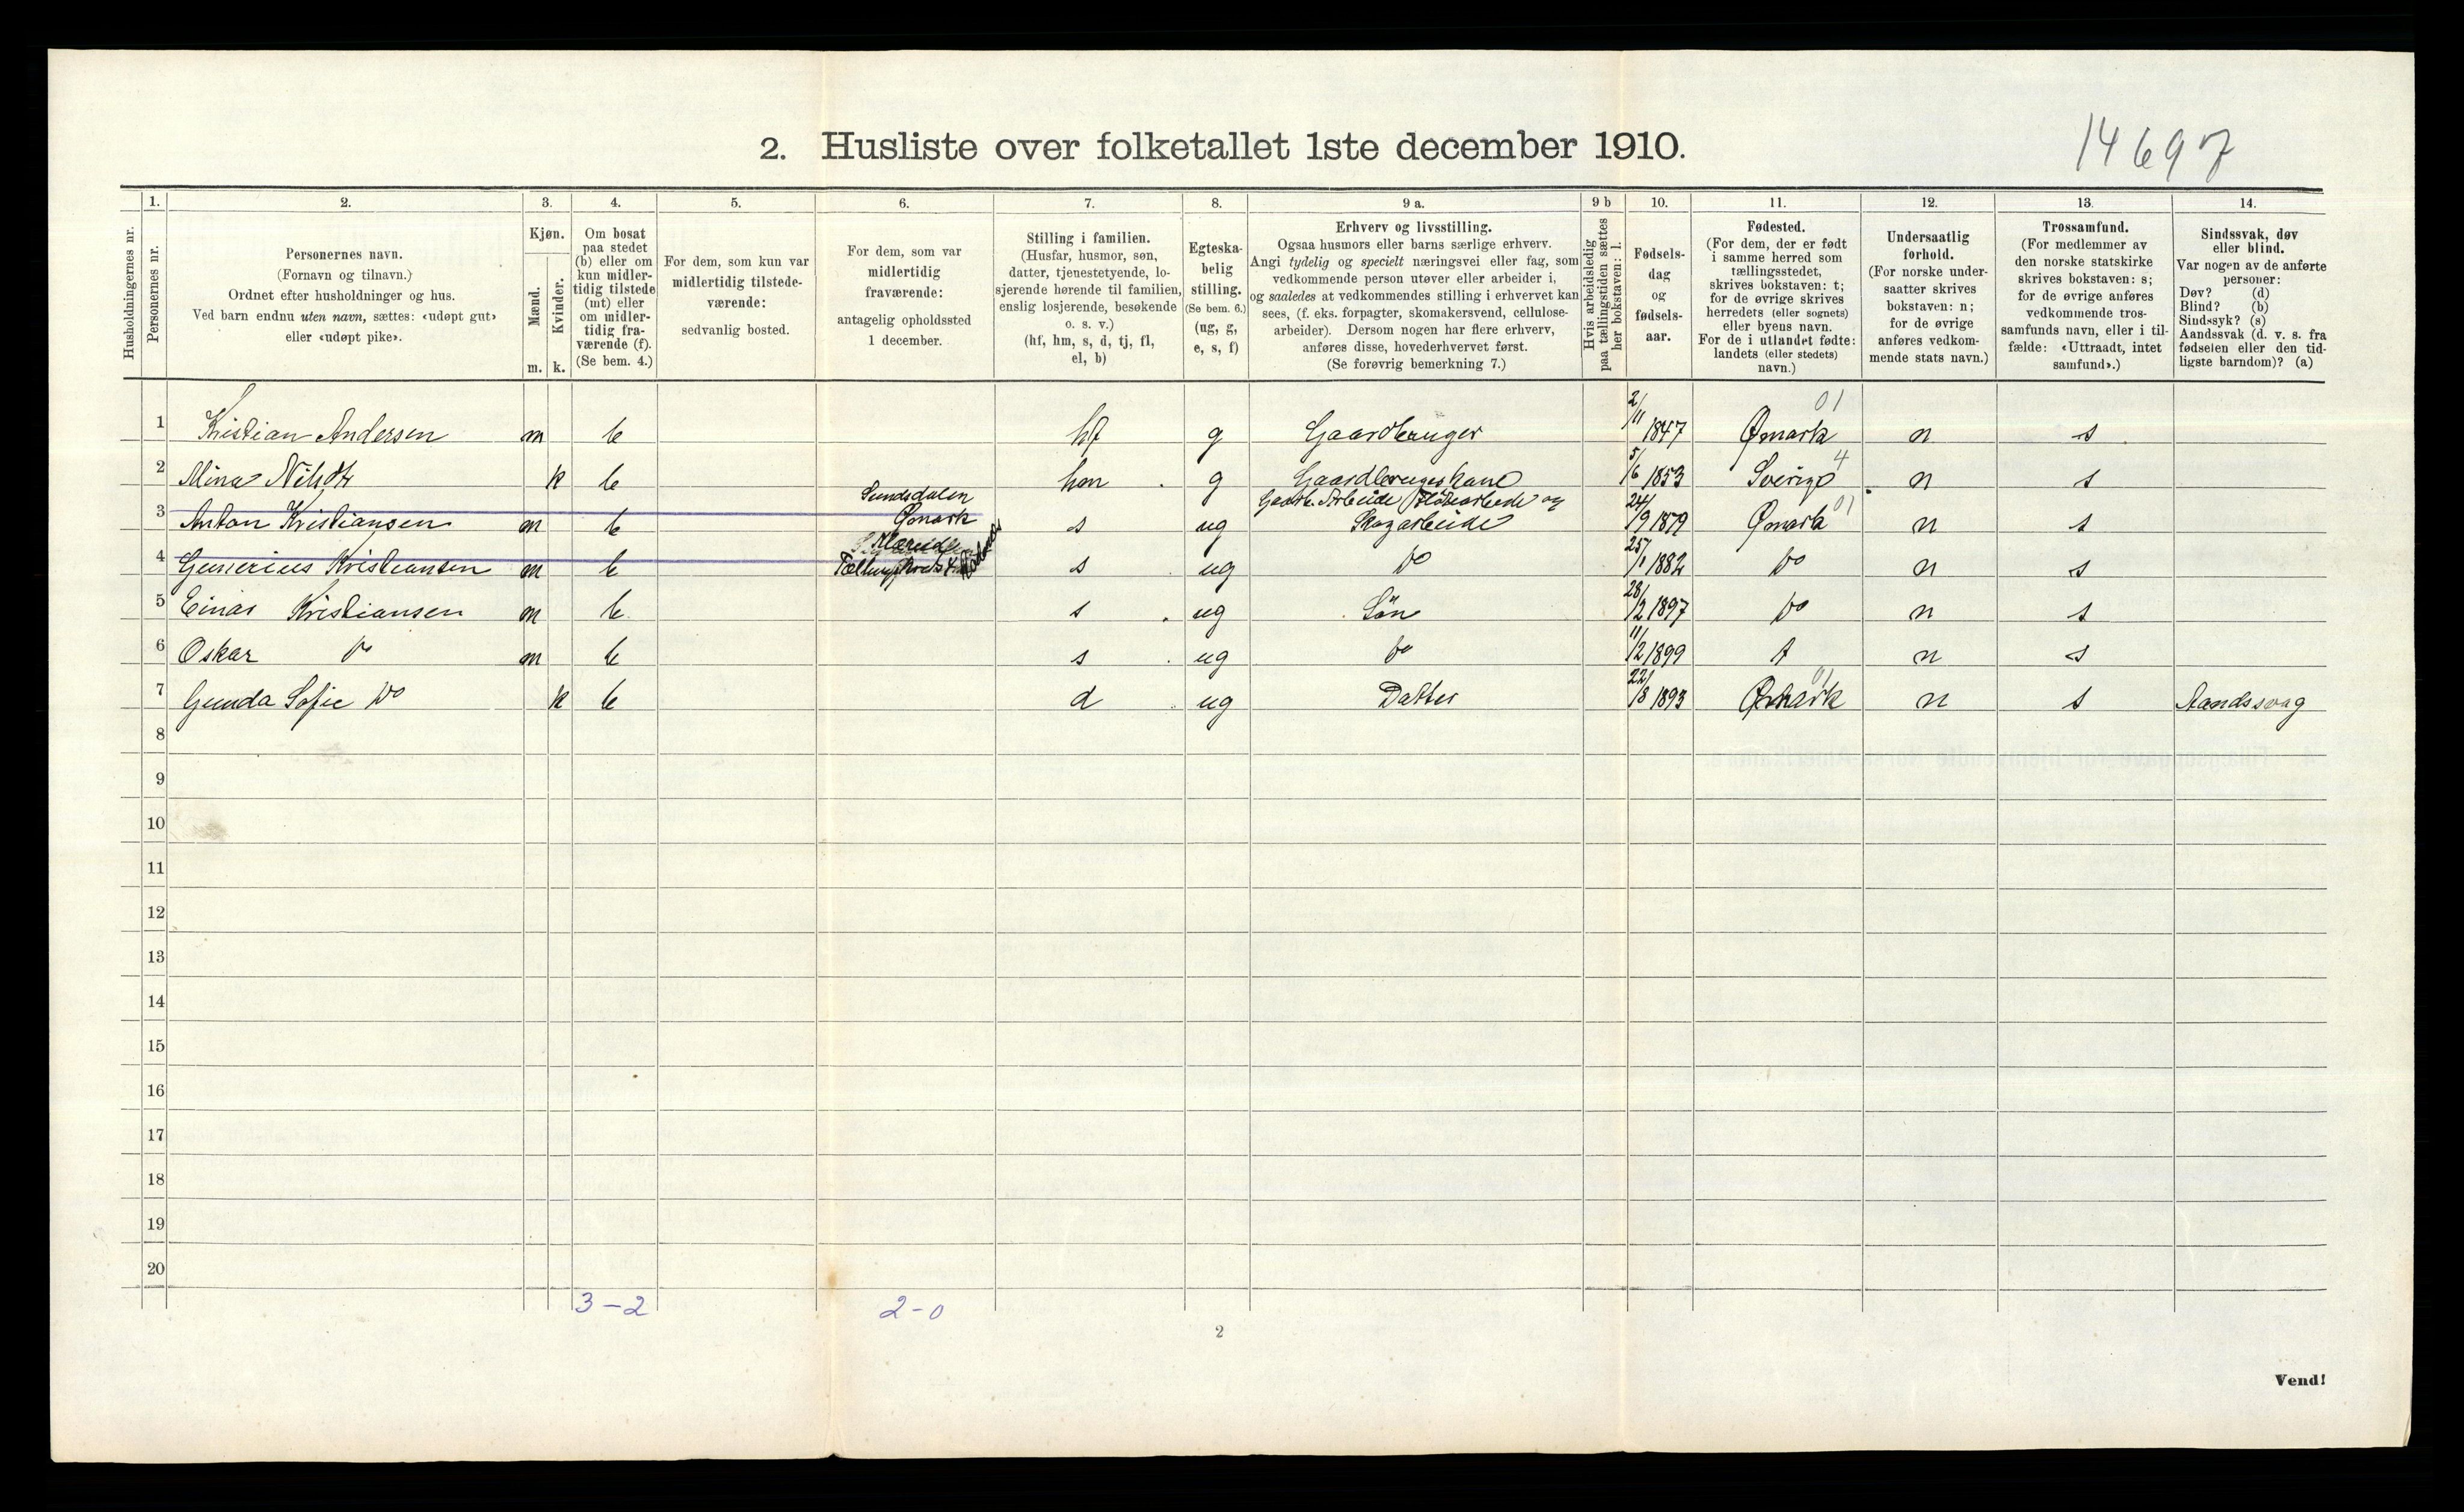 14697
2. Husliste over folketallet 1ste december 1910.
1. 2. 3. 4. 5. 6. 7. 8. 9 a. 9 b 10. 11. 12. 13. 14.
Husholdningernes nr.
Personernes nr.
Personernes navn.
(Fornavn og tilnavn.)
Ordnet efter husholdninger og hus.
Ved barn endnu uten navn, sættes: «udøpt gut»
eller «udøpt pike».
Kjøn.
Mænd.
Kvinder.
m. k.
Om bosat
paa stedet
(b) eller om
kun midler-
tidig tilstede
(mt) eller
om midler-
tidig fra-
værende (f).
(Se bem. 4.)
For dem, som kun var
midlertidig tilstede-
værende:
sedvanlig bosted.
For dem, som var
midlertidig
fraværende:
antagelig opholdssted
1 december.
Stilling i familien.
(Husfar, husmor, søn,
datter, tjenestetyende, lo-
sjerende hørende til familien,
enslig losjerende, besøkende
o. s. v.)
(hf, hm, s, d, tj, fl,
el, b)
Egteska-
belig
stilling.
(Se bem. 6.)
(ug, g,
e, s, f)
Erhverv og livsstilling.
Ogsaa husmors eller barns særlige erhverv.
Angi tydelig og specielt næringsvei eller fag, som
vedkommende person utøver eller arbeider i,
og saaledes at vedkommendes stilling i erhvervet kan
sees, (f. eks. forpagter, skomakersvend, cellulose-
arbeider). Dersom nogen har flere erhverv,
anføres disse, hovederhvervet først.
(Se forøvrig bemerkning 7.)
Hvis arbeidsledig
paa tællingstiden sættes
her bokstaven: l.
Fødsels-
dag
og
fødsels-
aar.
Fødested.
(For dem, der er født
i samme herred som
tællingsstedet,
skrives bokstaven: t;
for de øvrige skrives
herredets (eller sognets)
eller byens navn.
For de i utlandet fødte:
landets (eller stedets)
navn.)
Undersaatlig
forhold.
(For norske under-
saatter skrives
bokstaven: n;
for de øvrige
anføres vedkom-
mende stats navn.)
Trossamfund.
(For medlemmer av
den norske statskirke
skrives bokstaven: s;
for de øvrige anføres
vedkommende tros-
samfunds navn, eller i til-
fælde: «Uttraadt, intet
samfund».)
Sindssvak, døv
eller blind.
Var nogen av de anførte
personer:
Døv? (d)
Blind? (b)
Sindssyk? (s)
Aandssvak (d. v. s. fra
fødselen eller den tid-
ligste barndom)? (a)
01
1 Kristian Andersen m b hf g Gaardbruger 2/11 1847 Ømark n s
4
2 Mina k b hm g Gaardbrugeskane 5/6 1853 Sverige n s
Sundsdalen Arbeide og
01
3 Anton Kristiansen m b Ømark s ug Skogarbeide 24/9 1879 Ømark n s
4 Gunerius Kristiansen m b s ug Do 25/1 1882 Do n s
5 Einar Kristiansen m b s ug Sön 28/2 1897 Do n s
6 Oskar Do m b s ug Do 11/2 1899 t n s
01
7 Gunda Sofie Do k b d ug Datter 22/8 1893 Ømark n s Aandssvag
8
9
10
11
12
13
14
15
16
17
18
19
20
3-2 2-0
2
Vend!